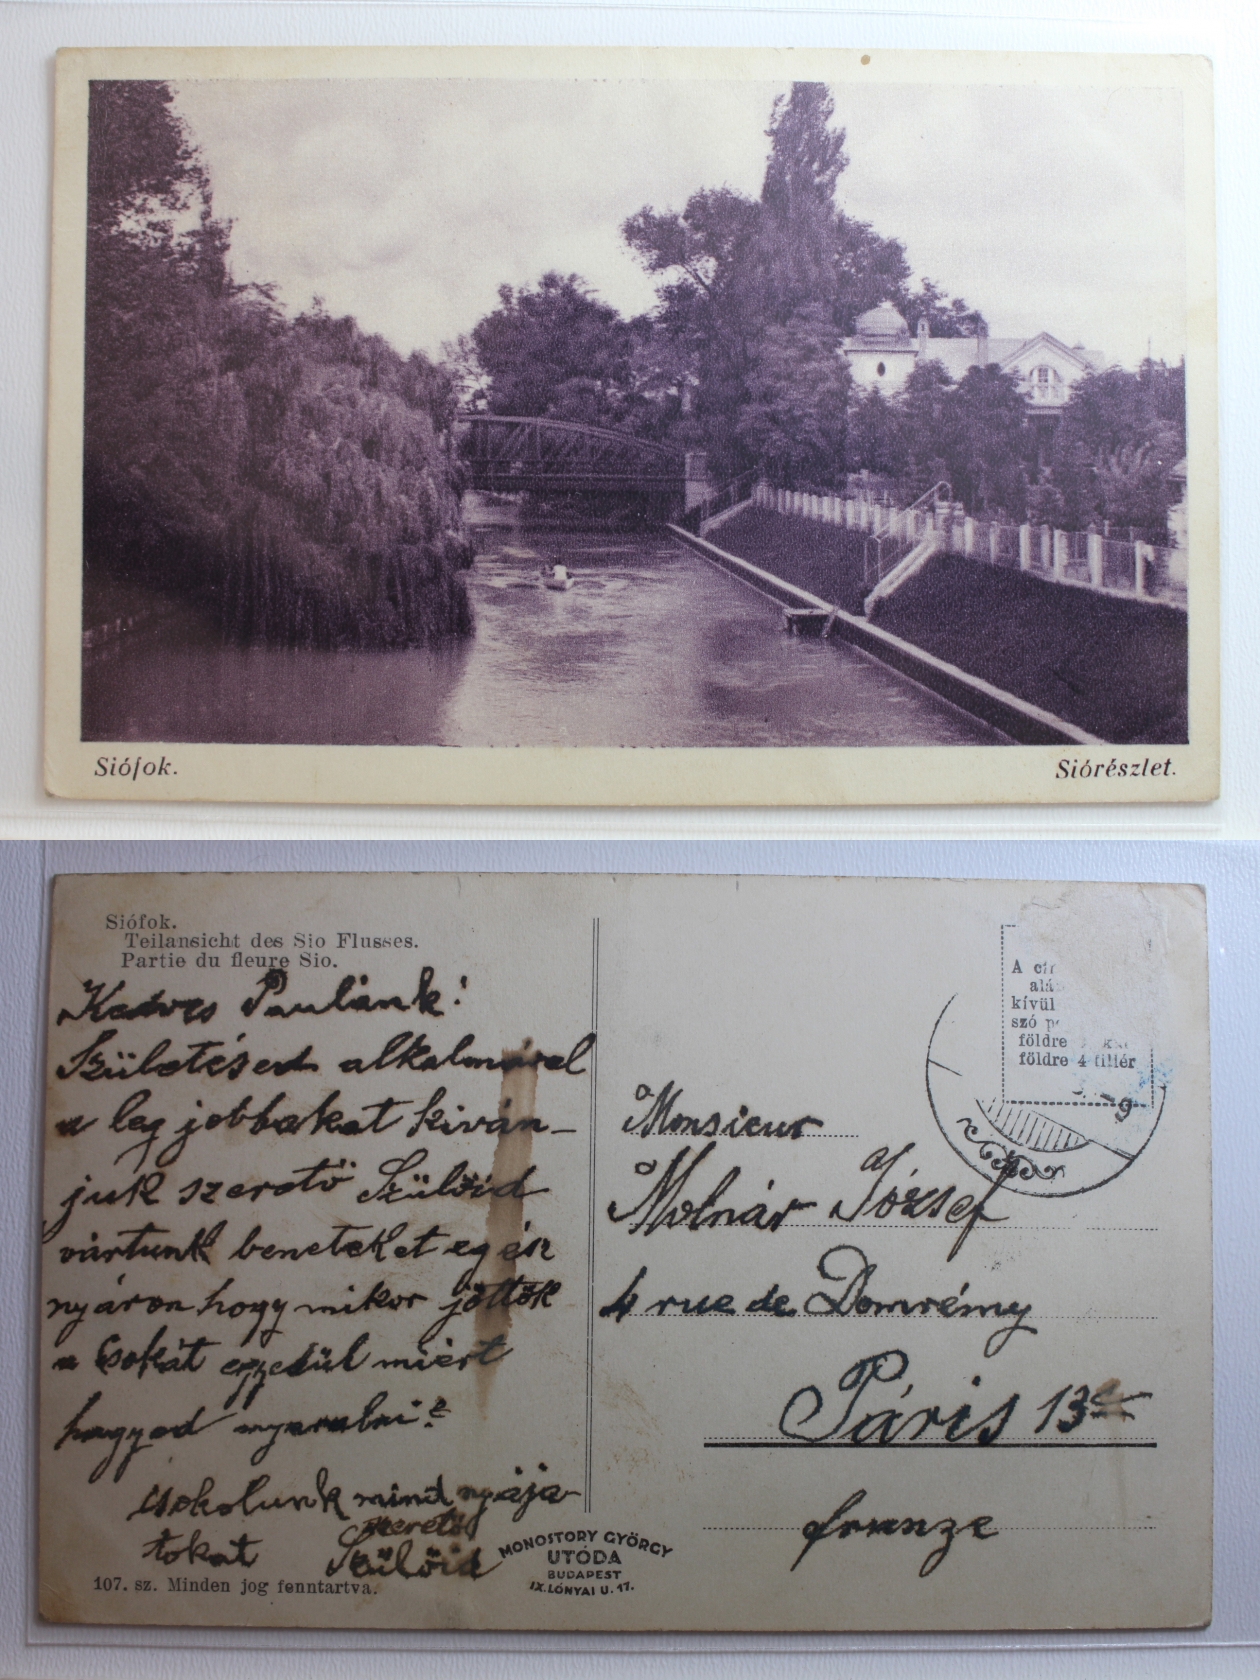 Siófok.
Siórészlet.
Siófok.
Teilansicht des Sio Flusses.
Partie du fleure Sio.
Kedves Paulánk!
Születésed alkalmával
a leg jobbakat kiván-
juk szerető Szülőid
vártunk beneteket egész
nyáron hogy mikor jöttök
a Csokát egyedül miért
hagyod nyaralni?
csokolunk mind nyája
tokat szerető
Szülőid
107. sz. Minden jog fenntartva.
MONOSTORY GYÖRGY
UTÓDA
BUDAPEST
IX. LÓNYAI U. 17.
A cí
alá
kívül
szó p
földre
földre 4 fillér
-9
Monsieur
Molnár József
4 rue de Domrémy
Páris 13e
franze